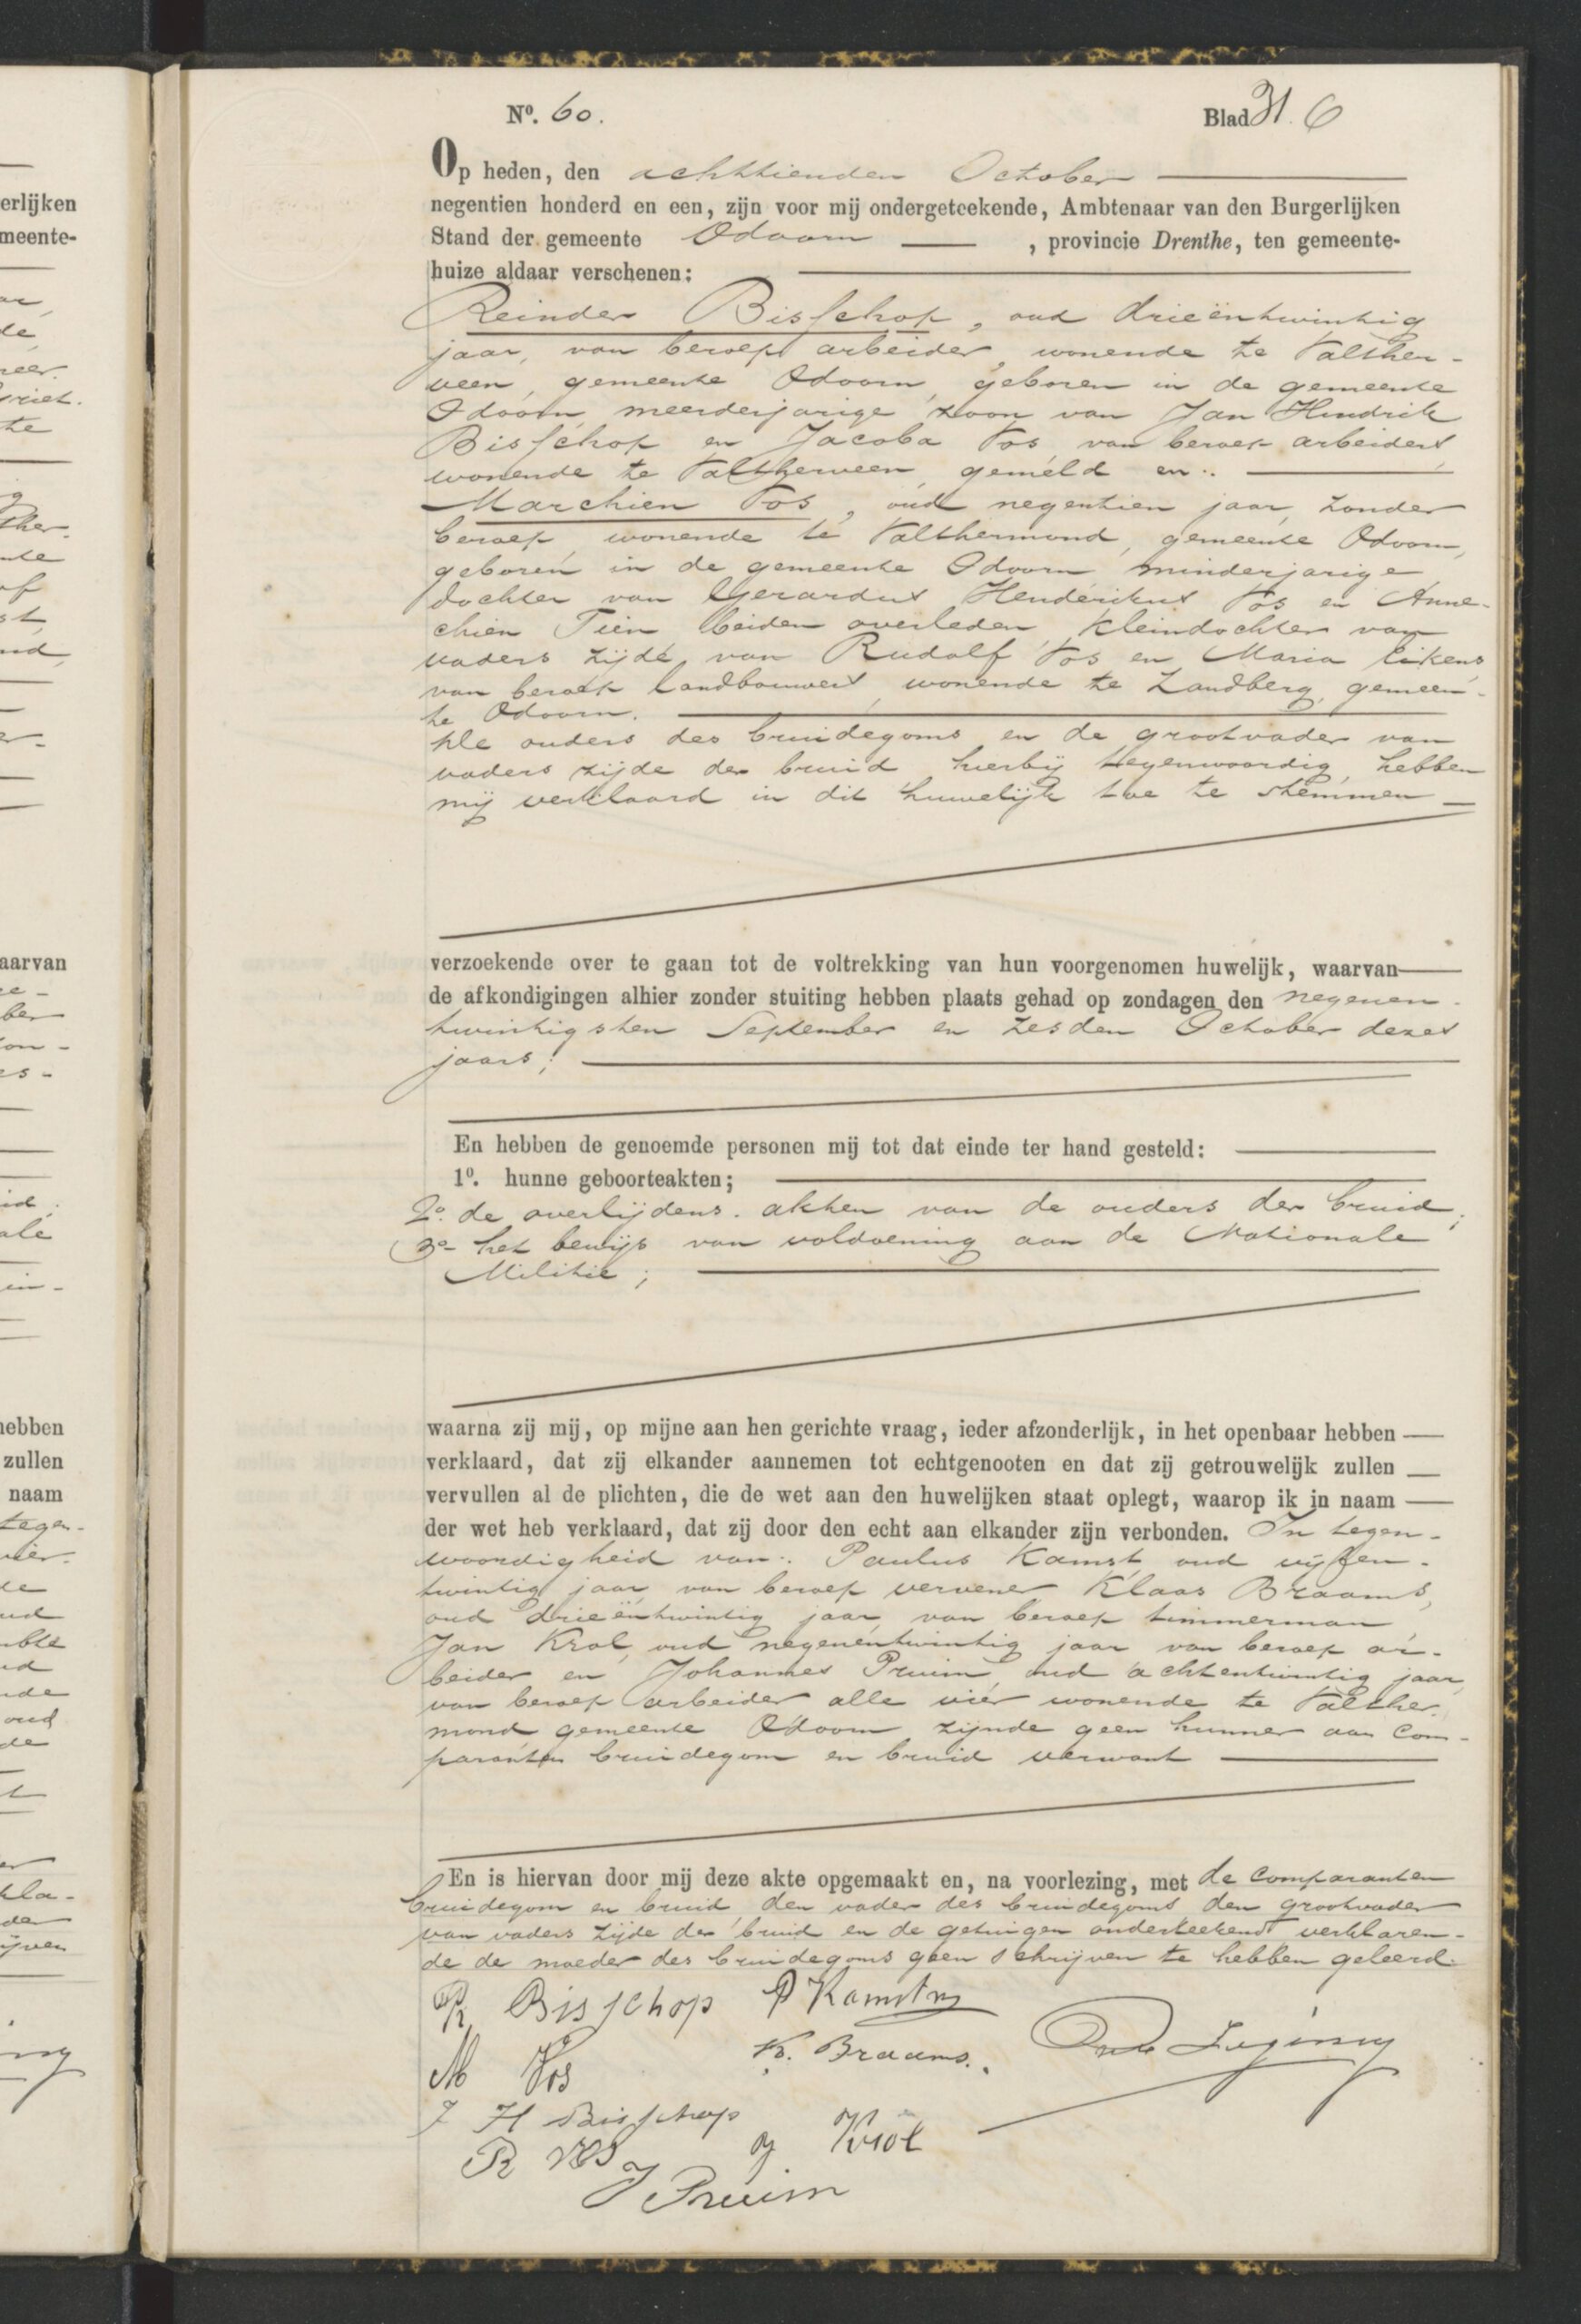 No. 60.
Blad 31. 6
Op heden, den achttienden October
negentien honderd en een, zijn voor mij ondergeteekende, Ambtenaar van den Burgerlijken
Stand der gemeente Odoorn, provincie Drenthe, ten gemeente-
huize aldaar verschenen:
Reinder Bisschop, oud drieëntwintig
jaar, van beroep arbeider, wonende te Valther-
veen, gemeente Odoorn, geboren in de gemeente
Odoorn, meerderjarige zoon van Jan Hendrik
Bisschop en Jacoba Vos van beroep arbeiders,
wonende te Valtherveen gemeld en:
Marchien Vos, oud negentien jaar, zonder
beroep, wonende te Valthermond, gemeente Odoorn,
geboren in de gemeente Odoorn minderjarige
dochter van Gerardus Henderikus Vos en Anne-
chien Tien beiden overleden, kleindochter van
vaders zijde van Rudolf Vos en Maria Eikens
van beroep landbouwers, wonende te Zandberg, gemeen-
te Odoorn.
De ouders des bruidegoms en de grootvader van
vaders zijde der bruid hierbij tegenwoordig, hebben
mij verklaard in dit huwelijk toe te stemmen
verzoekende over te gaan tot de voltrekking van hun voorgenomen huwelijk, waarvan
de afkondigingen alhier zonder stuiting hebben plaats gehad op zondagen den negenen-
twintigsten September en zesden October dezes
jaars;
En hebben de genoemde personen mij tot dat einde ter hand gesteld:
1o. hunne geboorteakten;
2o. de overlijdens-akten van de ouders der bruid;
3o- het bewijs van voldoening aan de Nationale
Militie;
waarna zij mij, op mijne aan hen gerichte vraag, ieder afzonderlijk, in het openbaar hebben
verklaard, dat zij elkander aannemen tot echtgenooten en dat zij getrouwelijk zullen
vervullen al de plichten, die de wet aan den huwelijken staat oplegt, waarop ik in naam
der wet heb verklaard, dat zij door den echt aan elkander zijn verbonden. In tegen-
woordigheid van: Paulus Kamst, oud vijfen-
twintig jaar, van beroep vervener, Klaas Braams,
oud drieëntwintig jaar, van beroep timmerman
Jan Krol, oud negenentwintig jaar van beroep ar-
beider en Johannes Pruim, oud achtentwintig jaar,
van beroep arbeider alle vier wonende te Valther-
mond gemeente Odoorn zijnde geen hunner aan com-
paranten bruidegom en bruid verwant
En is hiervan door mij deze akte opgemaakt en, na voorlezing, met de comparanten
bruidegom en bruid, den vader des bruidegoms den grootvader
van vaders zijde der bruid en de getuigen onderteekend verklaren-
de de moeder des bruidegoms geen schrijven te hebben geleerd.
R Bisschop P Kamst
M Vos K. Braams.
J H Bisschop
R Vos J Krol
J Pruim